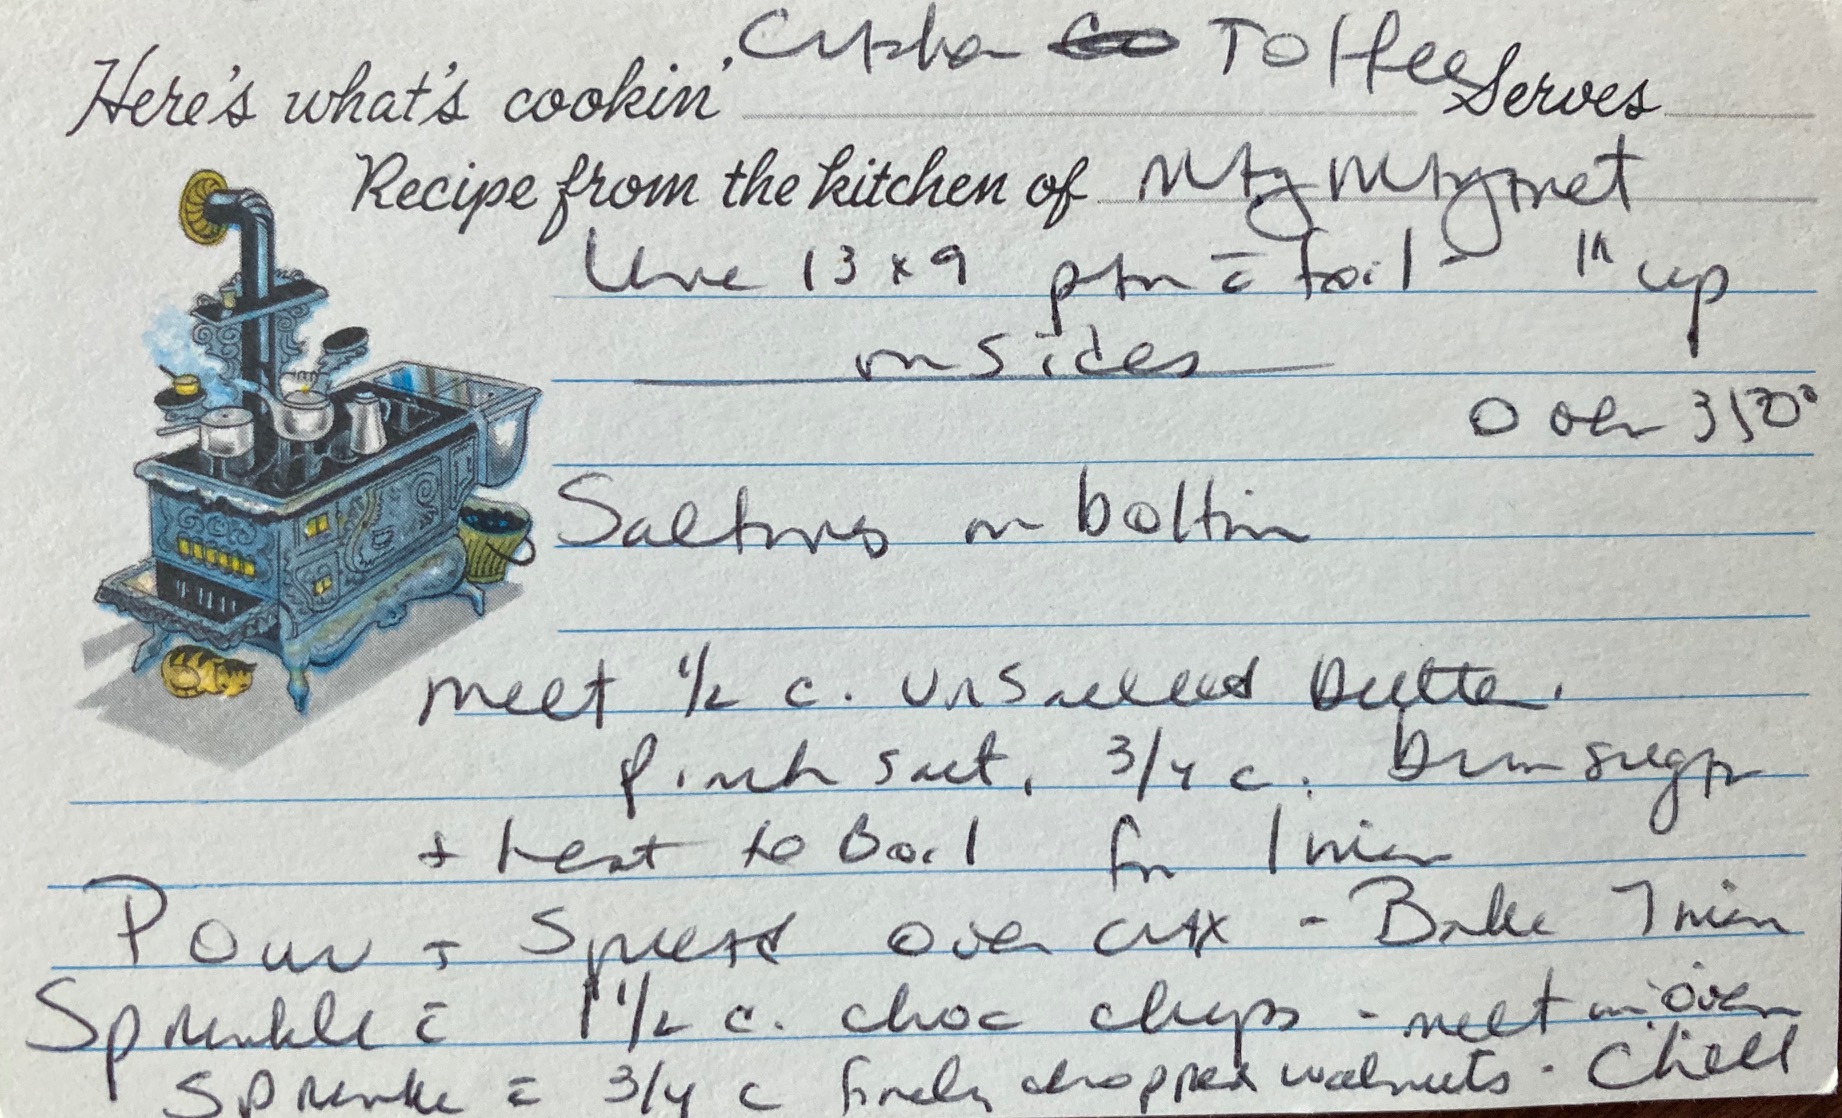 Here's what's cookin' Cracker Toffee Serves
Recipe from the kitchen of
Line 13 x 9 pan c̄ foil - 1" up
on sides
Oven 350°
Saltines on bottom
melt 1/2 c. unsalted butter.
pinch salt, 3/4 c. brown sugar
+ heat to Boil for 1 min
Pour + spread over crax - Bake 7 min
Sprinkle c̄ 1 1/2 c. choc chips - melt in oven
Sprinkle c̄ 3/4 c finely chopped walnuts. Chill